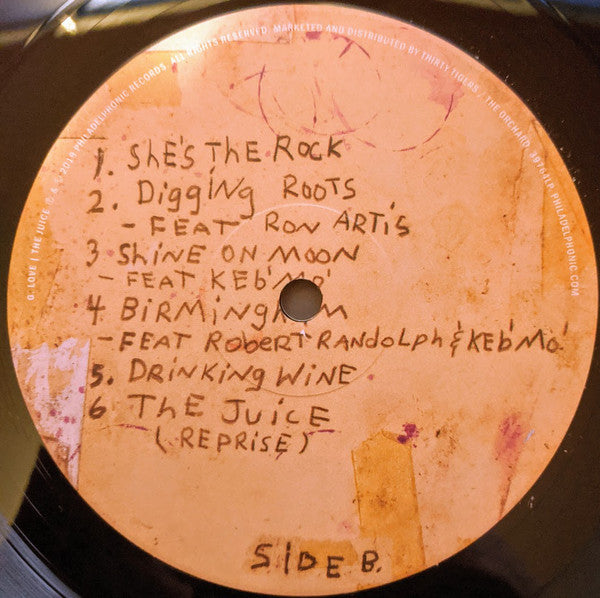 G. LOVE | THE JUICE ℗ & © 2019 PHILADELPHONIC RECORDS. ALL RIGHTS RESERVED. MARKETED AND DISTRIBUTED BY THIRTY TIGERS / THE ORCHARD. 39764LP. PHILADELPHONIC.COM
1. SHE'S THE ROCK
2. DiggiNg ROOTS
- FEAT RON ARTiS
3 SHiNE ON MOON
- FEAT KEB' MO'
4 BiRMiNgHAM
- FEAT ROBERT RANDOLPH & KEB' MO'
5. DRiNKiNg WiNE
6 THE JUiCE
(REPRiSE)
SiDE B.